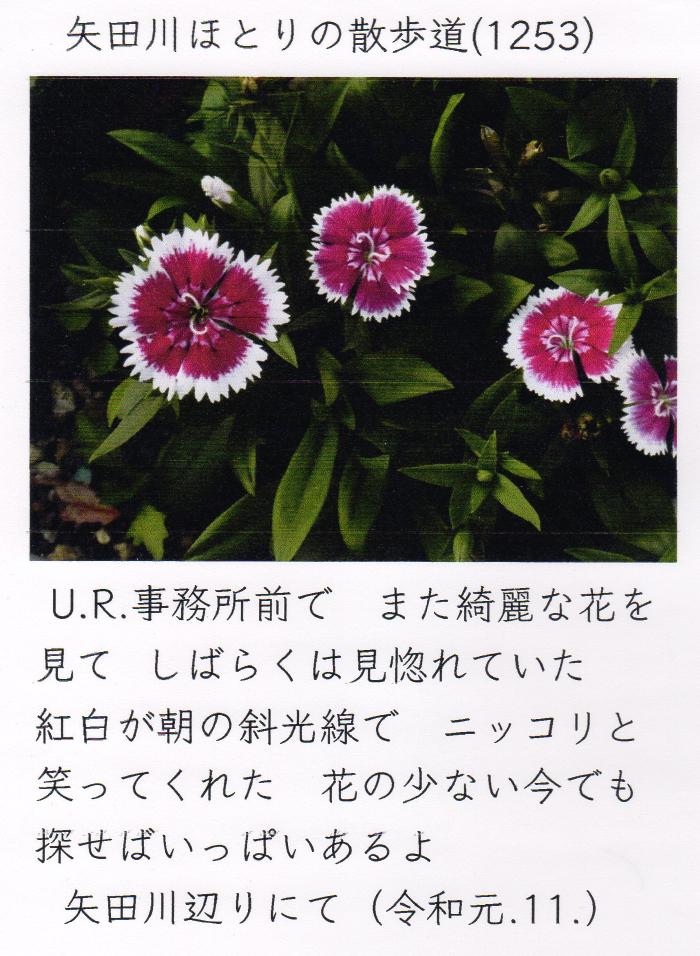 矢田川ほとりの散歩道(1253)
U.R.事務所前で　また綺麗な花を
見て　しばらくは見惚れていた
紅白が朝の斜光線で　ニッコリと
笑ってくれた　花の少ない今でも
探せばいっぱいあるよ
矢田川辺りにて（令和元.11.）